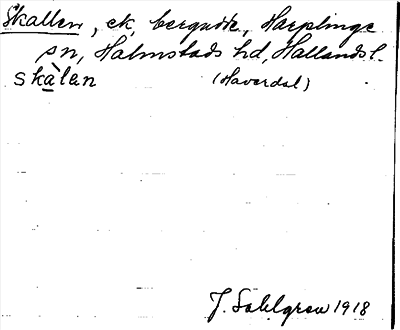 Skallen, ek, bergudde, Harplinge
sn, Halmstads hd, Hallands l.
skàlan (Haverdal)
J. Sahlgren 1918